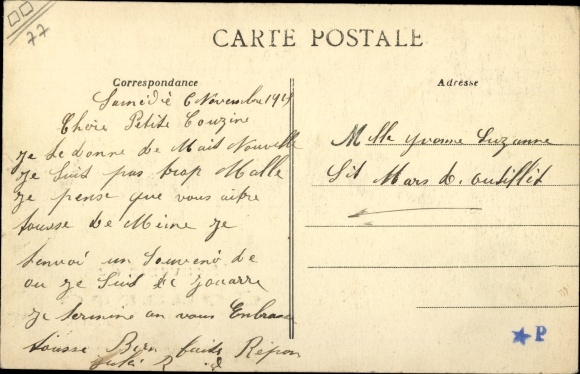 77
CARTE POSTALE
Correspondance
Adresse
Samédie 6 Novembre 191
Chére Petite Couzine
Je te donne de Mait Nouvelle
Je Suit pas trop Malle
Je pense que vous aitre
tousse de Méme Je
tenvoi un Souvenó de
ou je Suit
Je termine an vous Enbrace
tousse Bien faite Répon
Melle Yvonne Suzanne
Sit Mars d. outillét
P